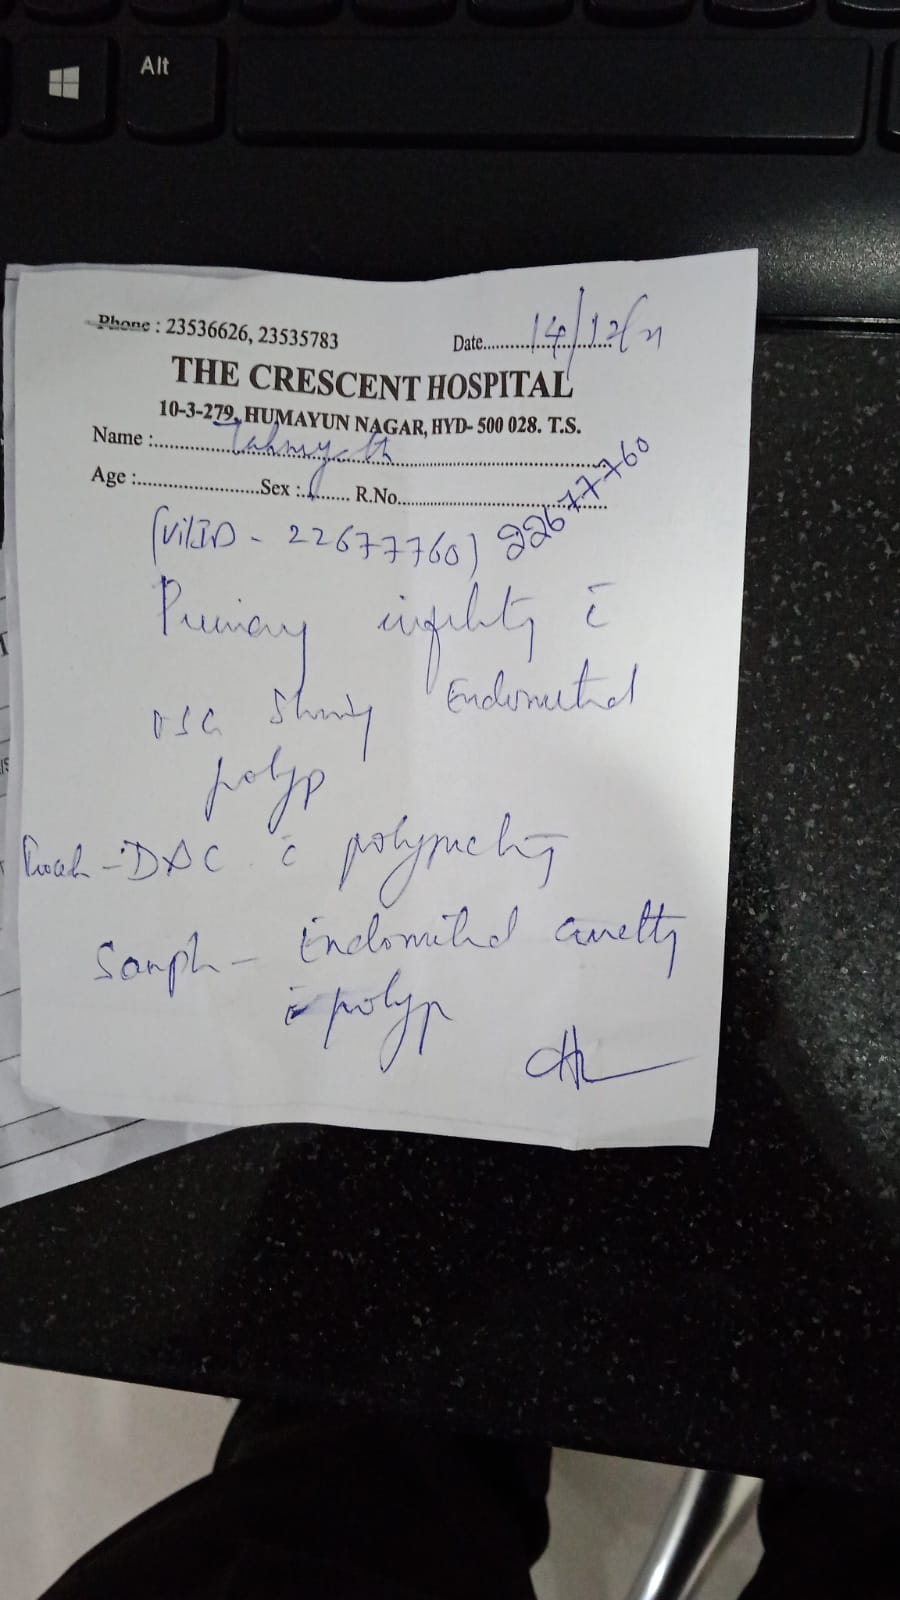 Alt
Phone : 23536626, 23535783
Date 14/12/21
THE CRESCENT HOSPITAL
10-3-279, HUMAYUN NAGAR, HYD- 500 028. T.S.
Name :
Age : Sex : f R.No.
(Vil.ID - 22677760) 22677760
Primary infertility c̄
USG Showing Endometrial
polyp
D&C c̄ polypectomy
Sample - Endometrial curettage
c̄ polyp